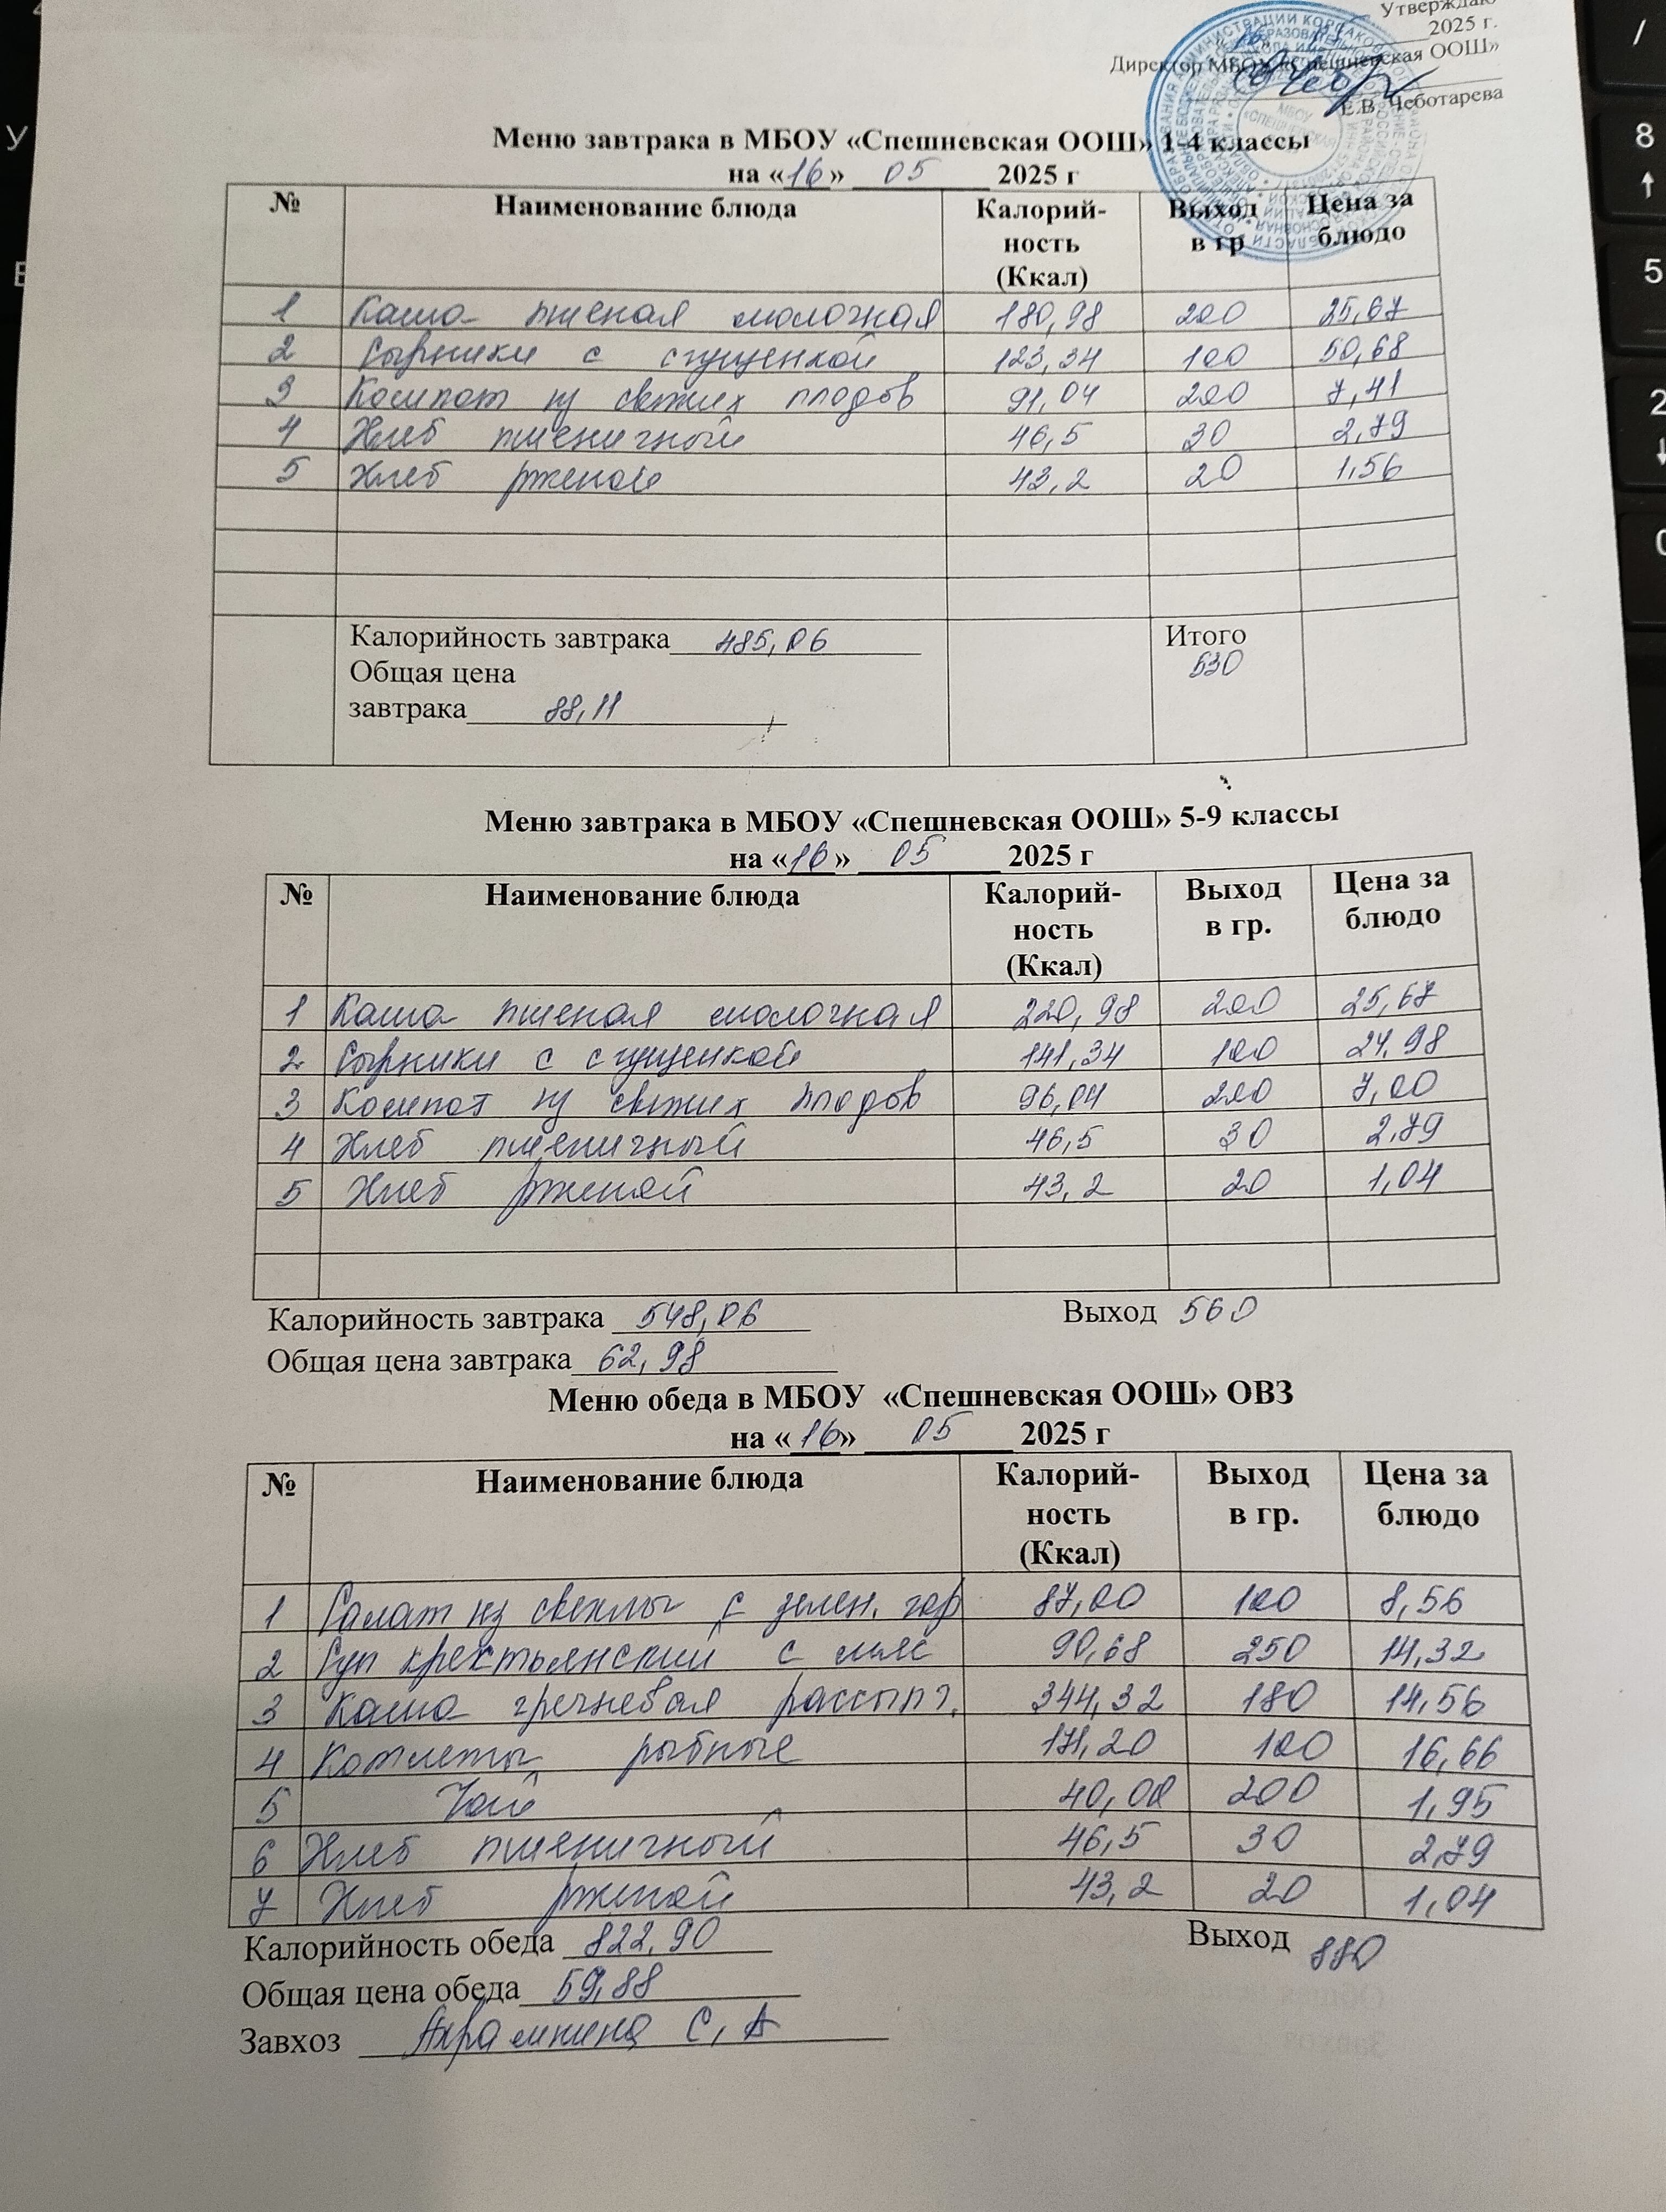 Утверждаю
2025 г.
Директор МБОУ «Спешневская ООШ»
Е.В. Чеботарева
Меню завтрака в МБОУ «Спешневская ООШ» 1-4 классы
на «16» 05 2025 г
№ Наименование блюда Калорий-ность (Ккал) Выход в гр Цена за блюдо
1 Каша пшеная молочная 180,98 200 25,67
2 Сырники с сгущенкой 123,34 100 50,68
3 Компот из свежих плодов 91,04 200 7,41
4 Хлеб пшеничный 46,5 30 2,79
5 Хлеб ржаной 43,2 20 1,56
Калорийность завтрака 485,06 Итого
Общая цена 530
завтрака 88,11
Меню завтрака в МБОУ «Спешневская ООШ» 5-9 классы
на «16» 05 2025 г
№ Наименование блюда Калорий-ность (Ккал) Выход в гр. Цена за блюдо
1 Каша пшеная молочная 220,98 200 25,67
2 Сырники с сгущенкой 141,34 100 24,98
3 Компот из свежих плодов 96,04 200 7,00
4 Хлеб пшеничный 46,5 30 2,79
5 Хлеб ржаной 43,2 20 1,04
Калорийность завтрака 548,06 Выход 560
Общая цена завтрака 62,98
Меню обеда в МБОУ «Спешневская ООШ» ОВЗ
на «16» 05 2025 г
№ Наименование блюда Калорий-ность (Ккал) Выход в гр. Цена за блюдо
1 Салат из свеклы с зелен. гор 87,00 100 8,56
2 Суп крестьянский с мяс 90,68 250 14,32
3 Каша гречневая рассыпч. 344,32 180 14,56
4 Котлеты рыбные 171,20 100 16,66
5 Чай 40,00 200 1,95
6 Хлеб пшеничный 46,5 30 2,79
7 Хлеб ржаной 43,2 20 1,04
Калорийность обеда 822,90 Выход 880
Общая цена обеда 59,88
Завхоз С,А